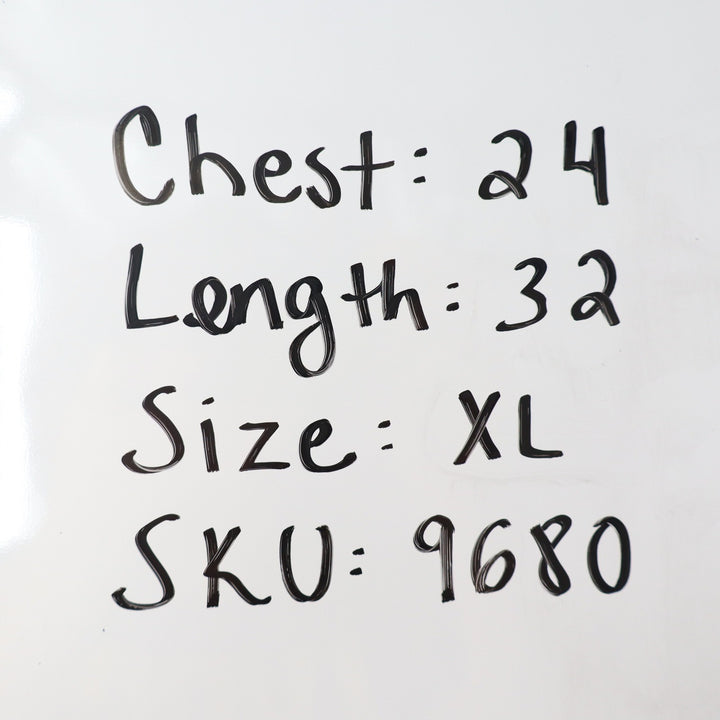 Chest: 24
Length: 32
Size: XL
SKU: 9680